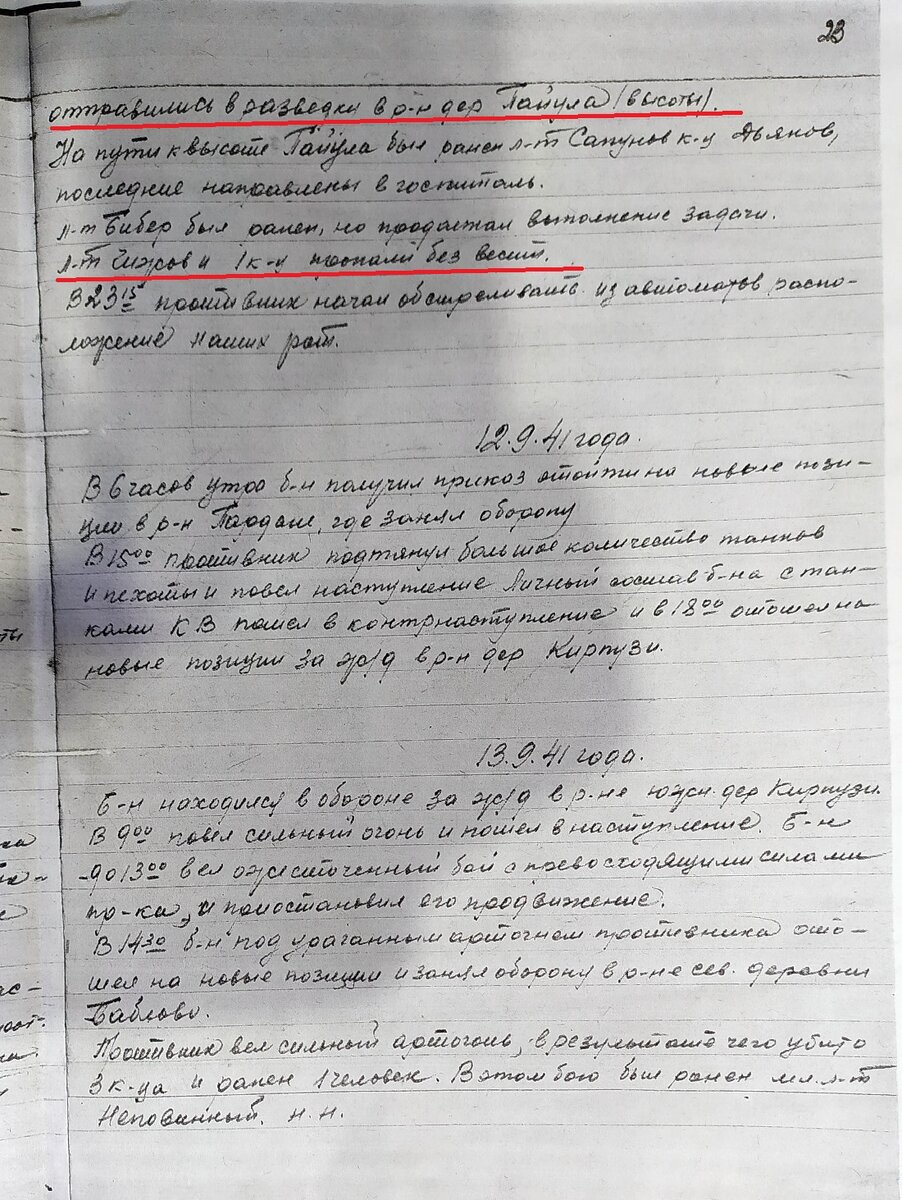 23
отправились в разведки в р-н дер Пайула (высоты).
На пути к высоте Пайула был ранен л-т Сапунов к-ц Дьянов,
последние направлены в госпиталь.
л-т Бибер был ранен, но продолжал выполнение задачи.
л-т Чижов и 1 к-ц пропали без вести.
В 23 15 противник начал обстреливать из автоматов распо-
ложение наших рот.
12.9.41 года.
В 6 часов утра б-н получил приказ отойти на новые пози-
ции в р-н Пардаш, где занял оборону
В 15 00 противник подтянул большое количество танков
и пехоты и повел наступление Личный состав б-на с тан-
ками КВ пошел в контрнаступление и в 18 00 отошел на
новые позиции за ж/д в р-н дер Кирпузи.
13.9.41 года.
Б-н находился в обороне за ж/д в р-не южн. дер Кирпузи.
В 9 00 повел сильный огонь и пошел в наступление. Б-н
до 13 00 вел ожесточенный бой с превосходящими силами
пр-ка, и приостановил его продвижение.
В 14 30 б-н под ураганным артогнем противника ото-
шел на новые позиции и занял оборону в р-не сев. деревни
Баблово.
Противник вел сильный артогонь, в результате чего убито
3 к-ца и ранен 1 человек. В этом бою был ранен мл. л-т
Неповинный. н.н.